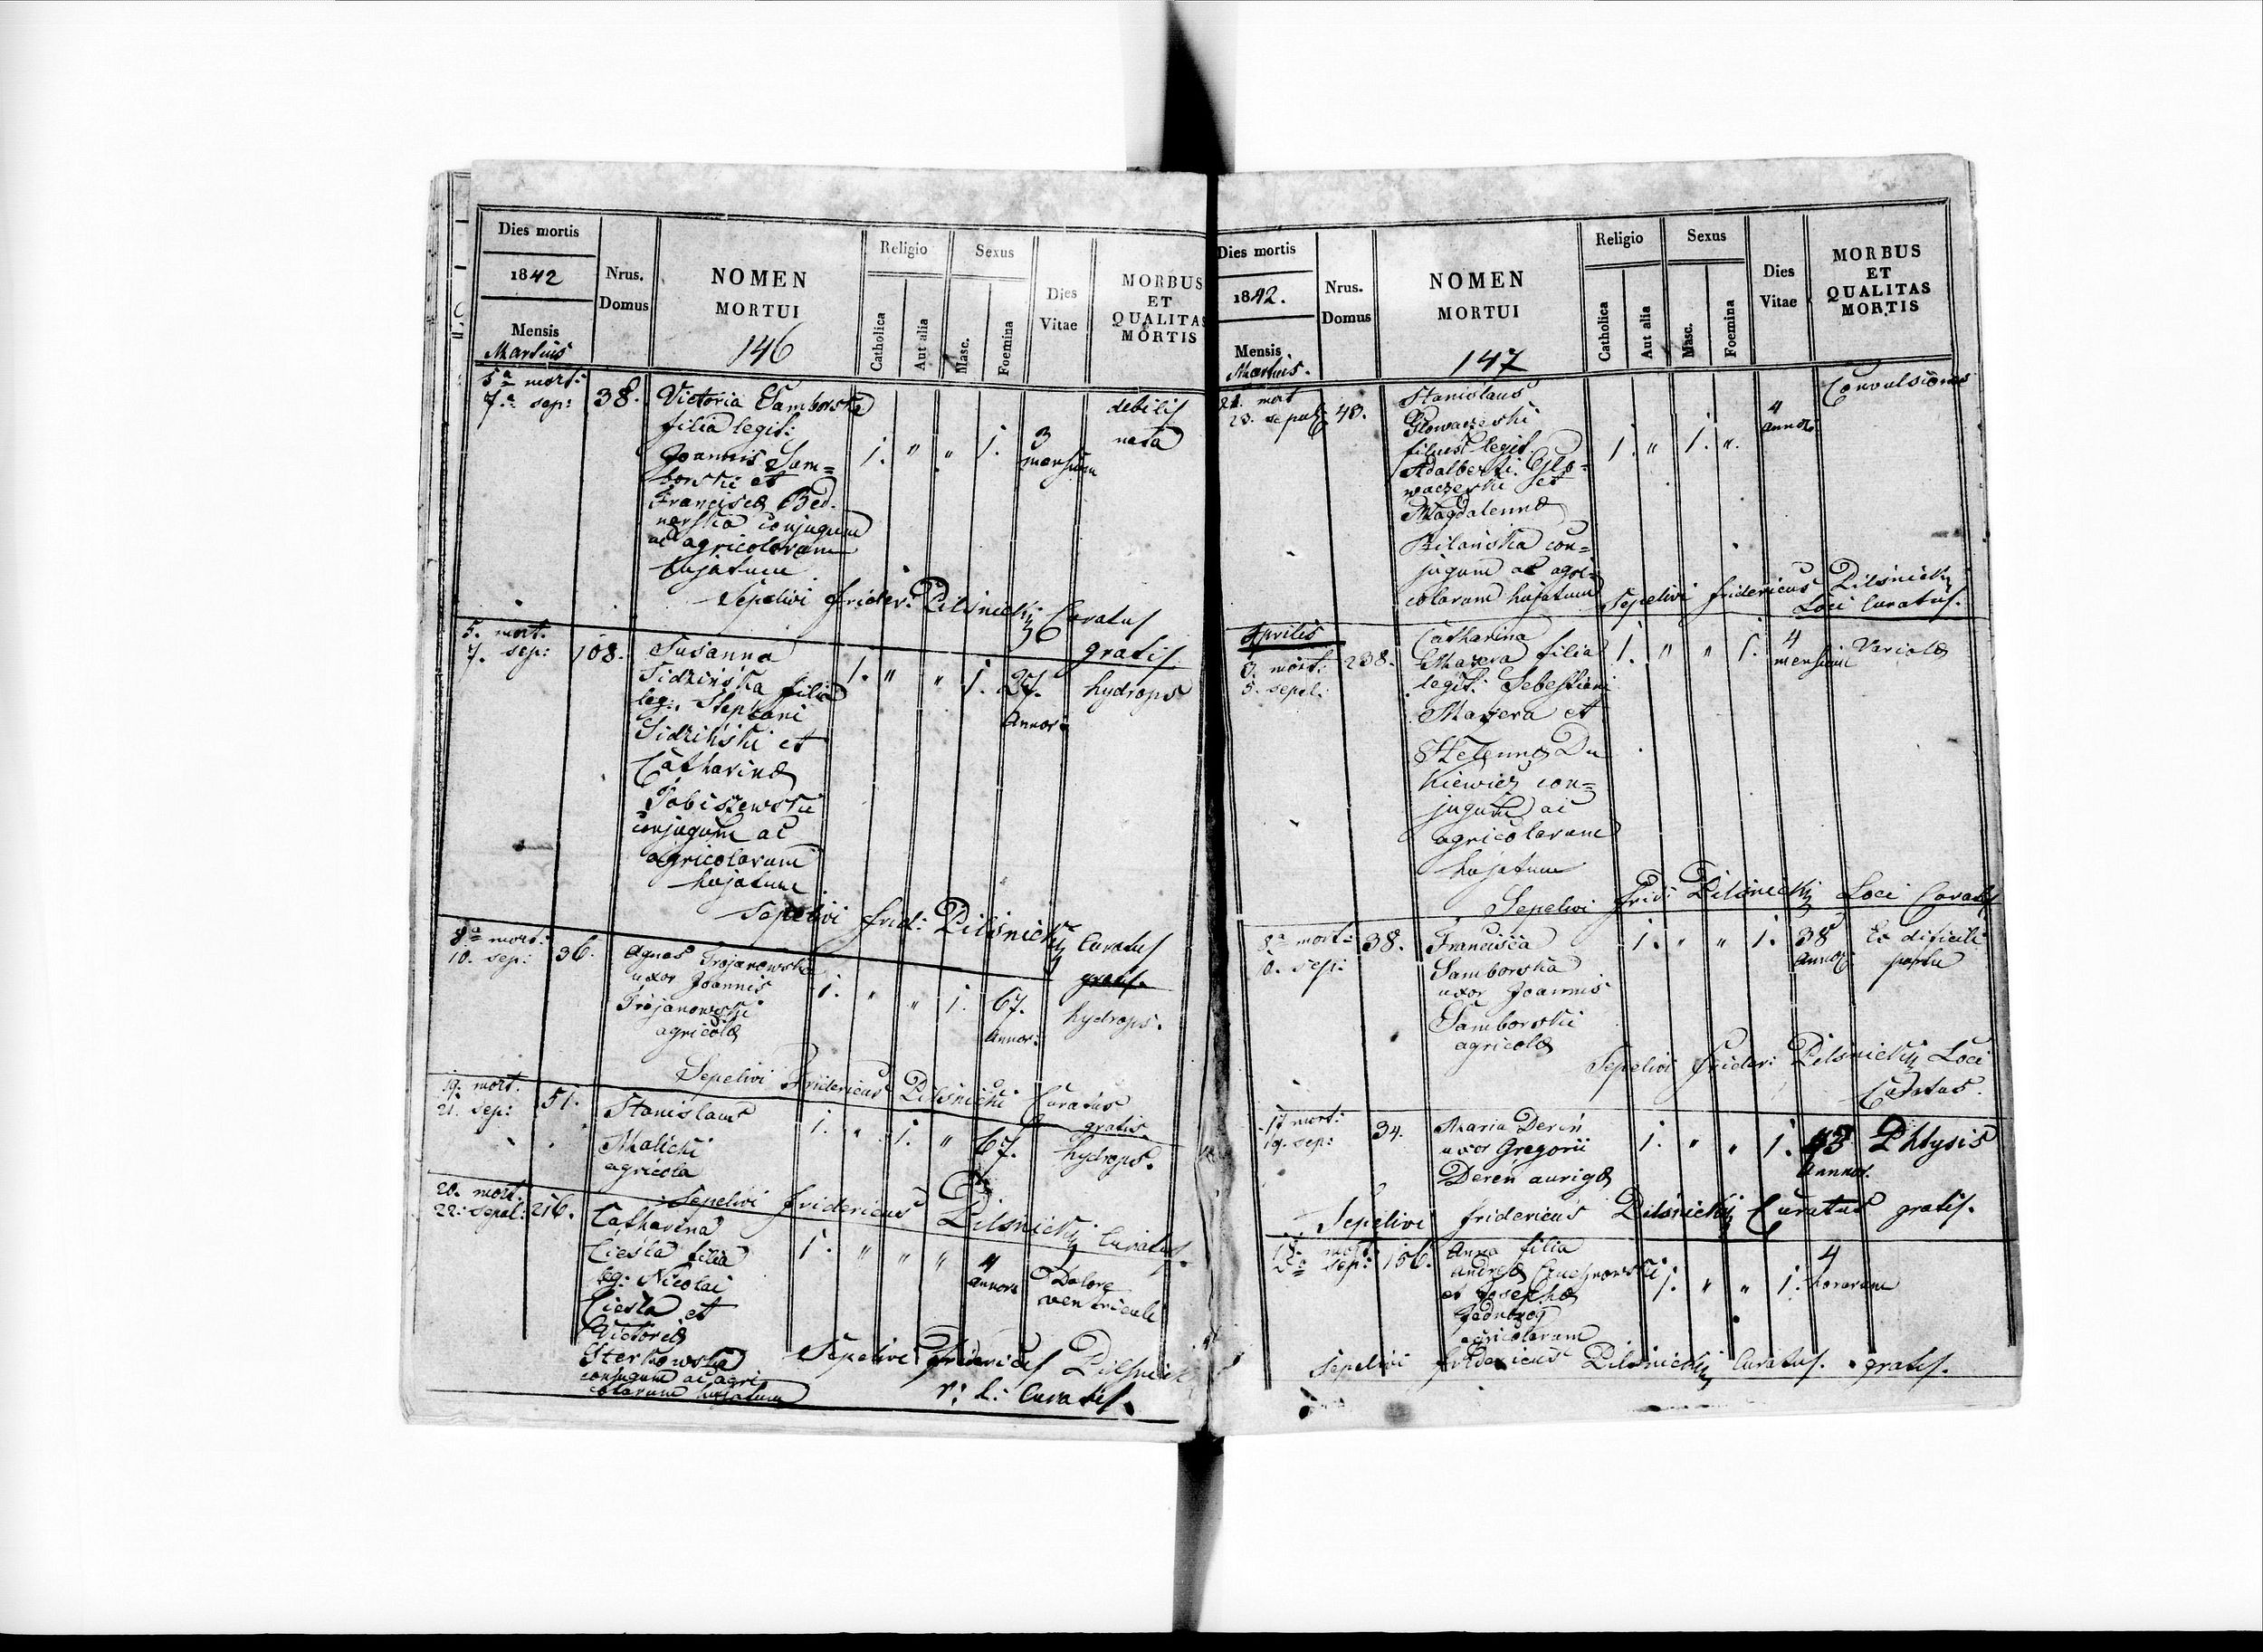 Dies mortis
1842
Mensis
Martius
Nrus.
Domus
NOMEN
MORTUI
146
Religio
Catholica
Aut alia
Sexus
Masc.
Foemina
Dies
Vitae
MORBUS
ET
QUALITAS
MORTIS
5a mort:
7a sep:
38.
Victoria Samborska
filia legit:
Joannis Sam=
borski et
Franciscæ Bed.
narska conjugum
ac agricolarum
hujatum
1. " " 1.
3
mensium
debilis
nata
Sepelivi Frider: Pilsnicki Curatus
gratis
5. mort.
7. sep:
108.
Susanna
Sidzińska filia
leg: Stephani
Sidziński et
Catharinæ
Tobiszewski
conjugum ac
agricolarum
hujatum
1. " " 1.
27.
Annor:
hydrops
Sepelivi Frid: Pilsnicki Curatus
gratis.
8a mort:
10. sep:
36.
Agnes Trojanowska
uxor Joannis
Trojanowski
agricolæ
1. " " 1.
67.
Annor:
hydrops.
Sepelivi Fridericus Pilsnicki Curatus
gratis.
19. mort.
21. sep:
51.
Stanislaus
Malicki
agricola
1. " 1. "
67.
hydrops.
Sepelivi Fridericus Pilsnicki Curatus.
20. mort.
22. sepul:
216.
Catharina
Cieśla filia
leg: Nicolai
Cieśla et
Victoriæ
Sterkowska
conjugum ac agri
colarum hujatum
1. " " "
4
annor
Dolore
ventriculi
Sepelivi Fridericus Pilsnicki
r: l: Curatus.
Dies mortis
1842.
Mensis
Martius.
Nrus.
Domus
NOMEN
MORTUI
147
Religio
Catholica
Aut alia
Sexus
Masc.
Foemina
Dies
Vitae
MORBUS
ET
QUALITAS
MORTIS
21. mort
23. sepul:
48.
Stanislaus
Głowaczeski
filius legit
Adalberti Gło=
waczeski et
Magdalennæ
Bilańska con=
jugum ac agri=
colarum hujatum
1. " 1. ".
4
annor
Convulsiones
Sepelivi Fridericus Pilsnicki
Loci Curatus.
Aprilis
3. mort:
5. sepel:
238.
Catharina
Mazera filia
legit: Sebestiani
Mazera et
Helennæ Du
kiewicz con=
jugum ac
agricolarum
hujatum
1. " " 1.
4
mensium
Variolæ
Sepelivi Frid: Pilsnicki Loci Curatus
8a mort:
10. sep:
38.
Francisca
Samborska
uxor Joannis
Samborski
agricolæ
1. " " 1.
38
annor
Ex dificili
partu
Sepelivi Frider: Pilsnicki Loci
Curatus.
17 mort:
19. sep:
34.
Maria Deren
uxor Gregorii
Deren aurigæ
1. " " 1.
43
Annor.
Phtysis
Sepelivi Fridericus Pilsnicki Curatus gratis.
18. mort.
sep:
156.
Anna filia
Andreæ
et Josephæ
agricolarum
1. " " 1.
4
horarum
Sepelivi Fridericus Pilsnicki Curatus. gratis.